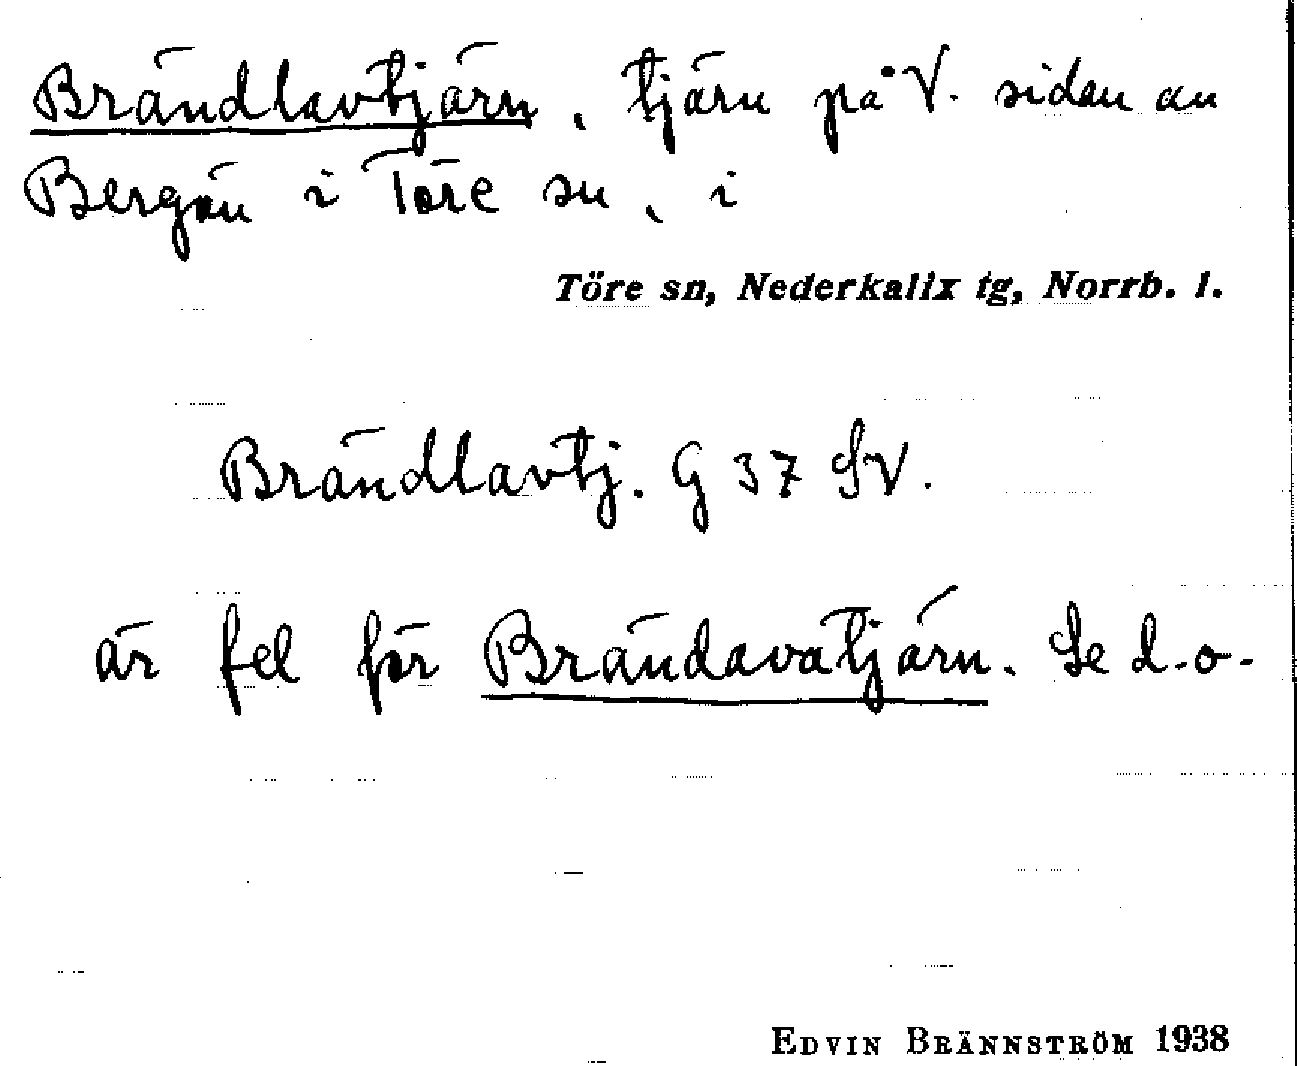 Brändlavtjärn, tjärn på V. sidan av
Bergön i Töre sn, i
Töre sn, Nederkalix tg, Norrb. l.
Brändlavtj. G 37 SV.
är fel för Brändavatjärn. Se d.o.
EDVIN BRÄNNSTRÖM 1938